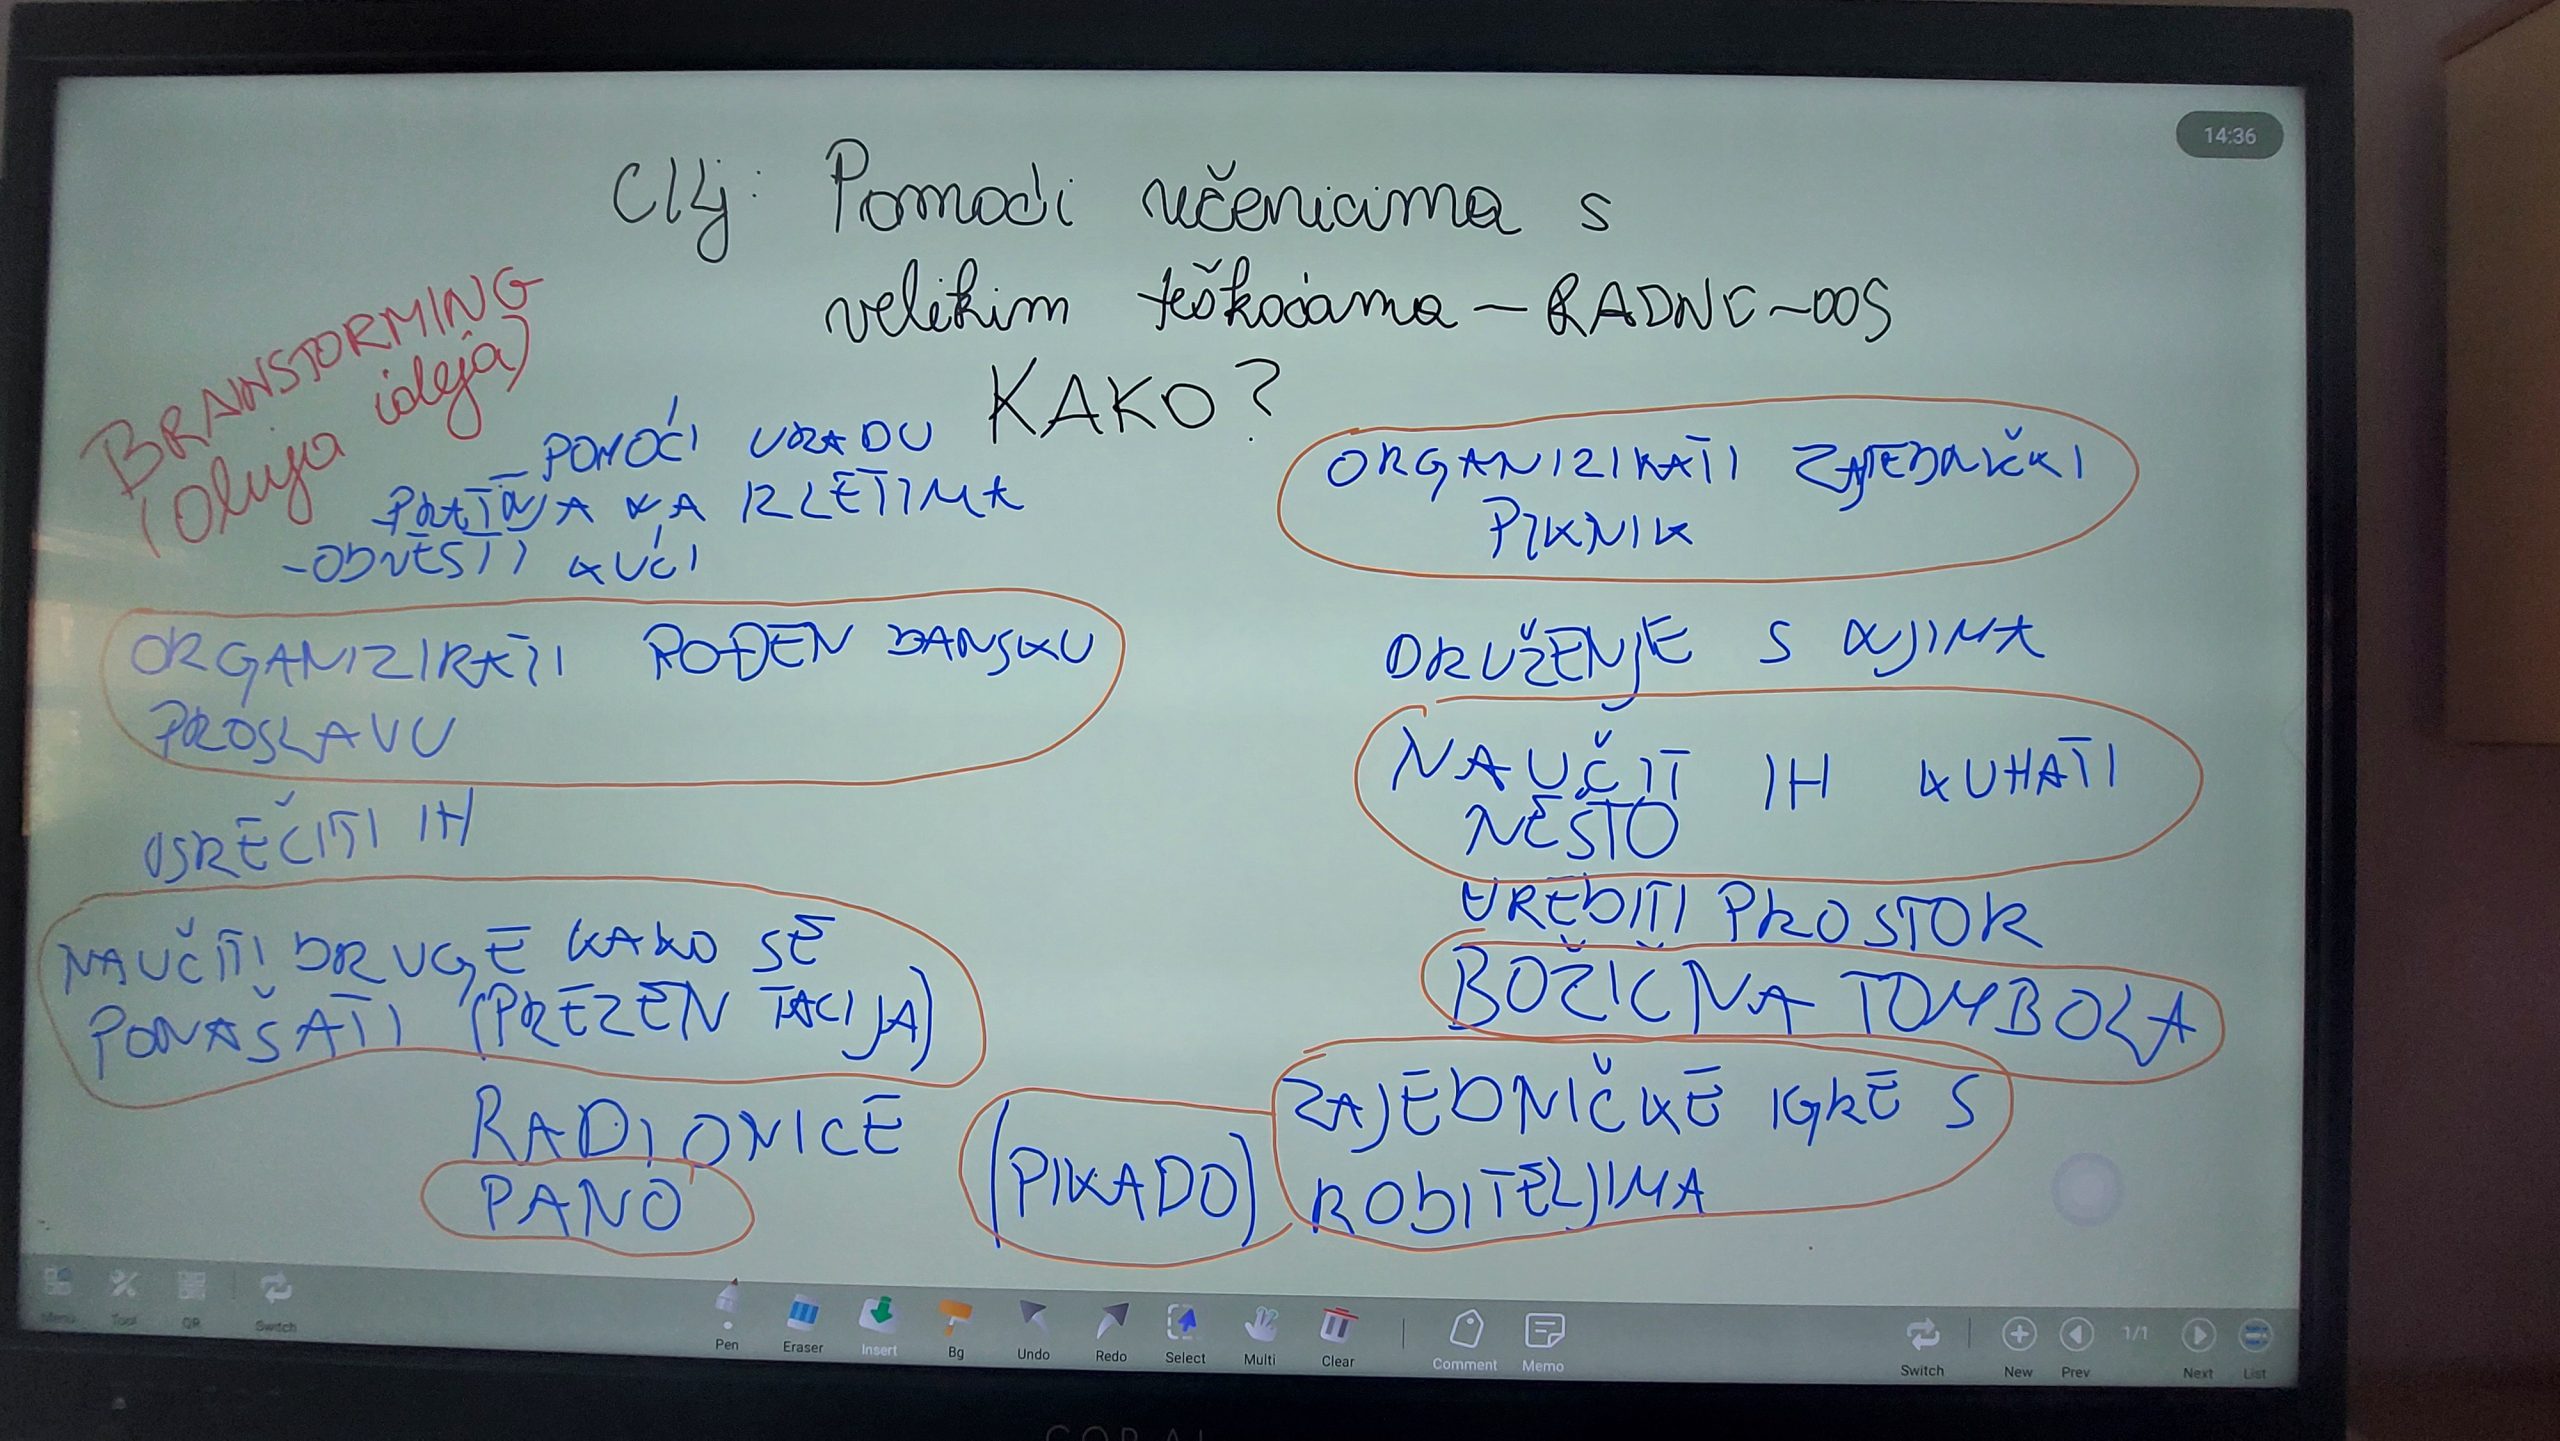 14:36
CILj: Pomoći učenicima s
velikim teškoćama – RADNE – OOS
KAKO?
BRAINSTORMING
(oluja ideja)
– POMOĆI U RADU
– PRATNJA NA IZLETIMA
– ODVESTI KUĆI
ORGANIZIRATI ROĐENDANSKU
PROSLAVU
USREĆITI IH
NAUČITI DRUGE KAKO SE
PONAŠATI (PREZENTACIJA)
RADIONICE
PANO
ORGANIZIRATI ZAJEDNIČKI
PIKNIK
DRUŽENJE S NJIMA
NAUČITI IH KUHATI
NEŠTO
UREDITI PROSTOR
BOŽIČNA TOMBOLA
(PIKADO)
ZAJEDNIČKE IGRE S
RODITELJIMA
Menu Tool QR Switch Pen Eraser Insert Bg Undo Redo Select Multi Clear Comment Memo Switch New Prev 1/1 Next List